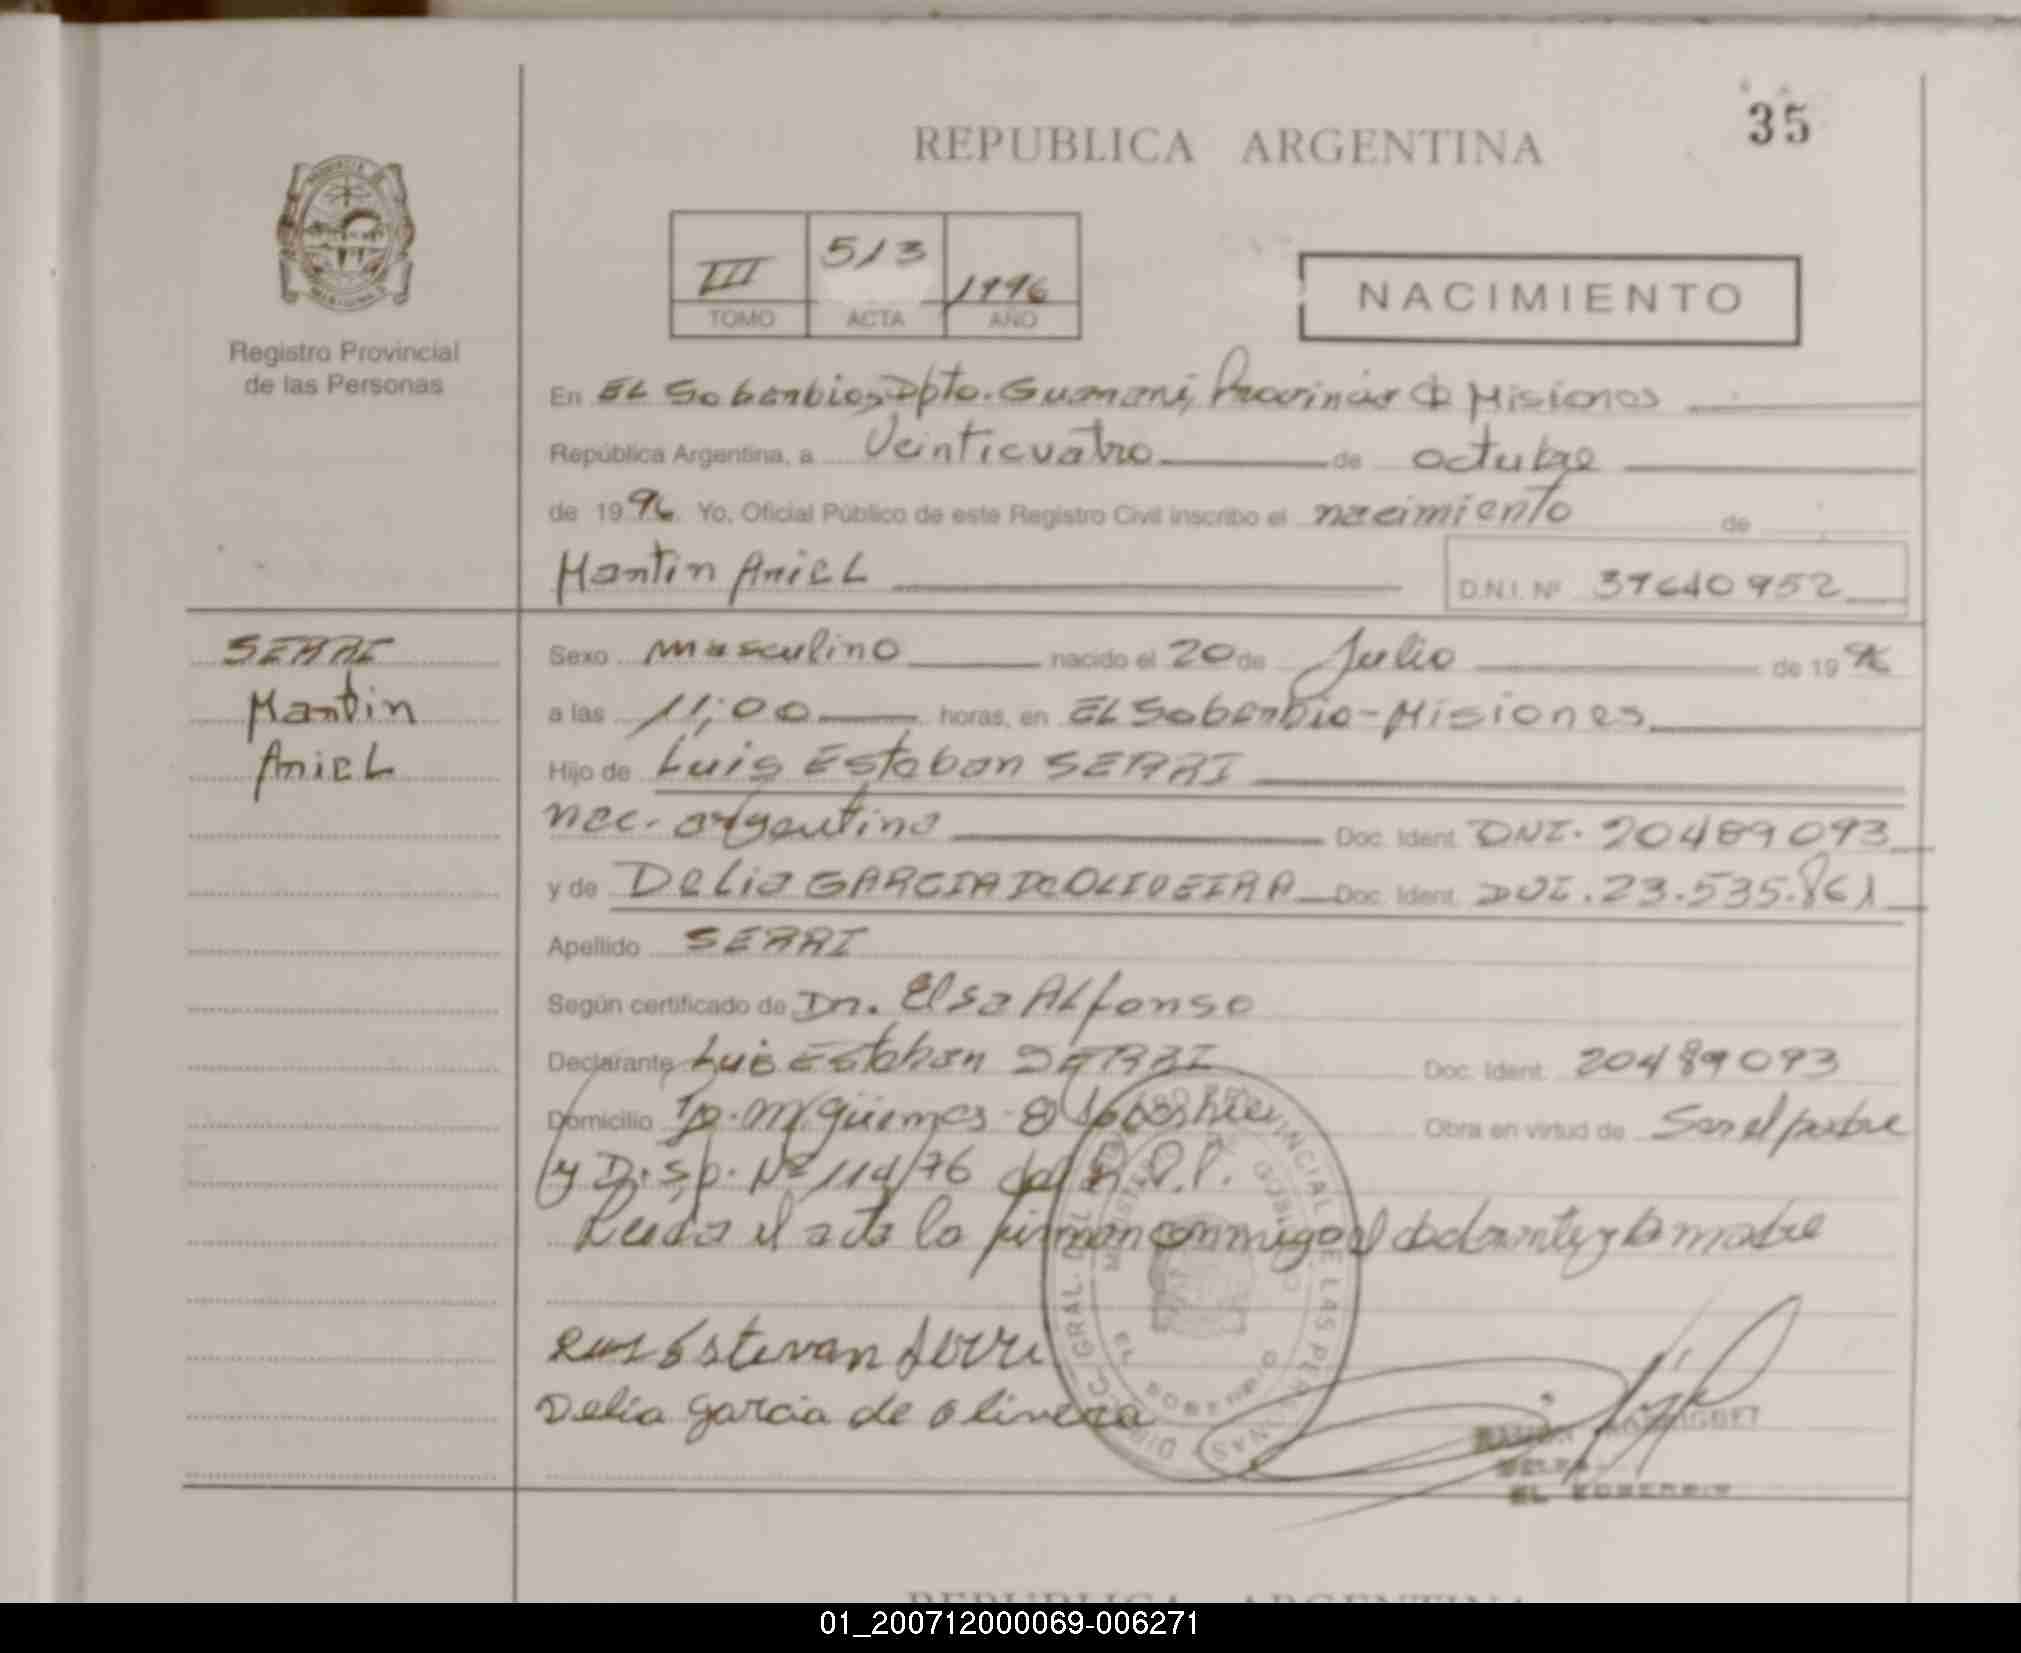 35
REPUBLICA ARGENTINA
III 513 1996
TOMO ACTA AÑO
NACIMIENTO
Registro Provincial
de las Personas
En EL Soberbio, Dpto. Guaraní, Provincia de Misiones
República Argentina, a Veinticuatro de octubre
de 1996. Yo, Oficial Público de este Registro Civil inscribo el nacimiento de
Martin Ariel
D.N.I. Nº 39640952
SERRI
Martin
Ariel
Sexo masculino nacido el 20 de Julio de 1996
a las 11;00 horas, en EL Soberbio-Misiones
Hijo de Luis Esteban SERRI
nac. argentino Doc. Ident. DNI. 20489093
y de Delia GARCIA De OLIVEIRA Doc. Ident. DNI. 23.535.861
Apellido SERRI
Según certificado de Dr. Elsa ALfonso
Declarante Luis Esteban SERRI Doc. Ident. 20489093
Domicilio M. Güemes El Soberbio Obra en virtud de Ser el padre
y Disp. Nº 114/76 del R.P.P.
Leida el acta la firman conmigo el declarante y la madre
Luis Estevan Serri
Delia garcia de olivera
DIREC. GRAL. DEL REGISTRO PROVINCIAL DE LAS PERSONAS
MINISTERIO DE GOBIERNO
EL SOBERBIO
RAMON RODRIGUEZ
EL SOBERBIO
REPUBLICA ARGENTINA
01_200712000069-006271